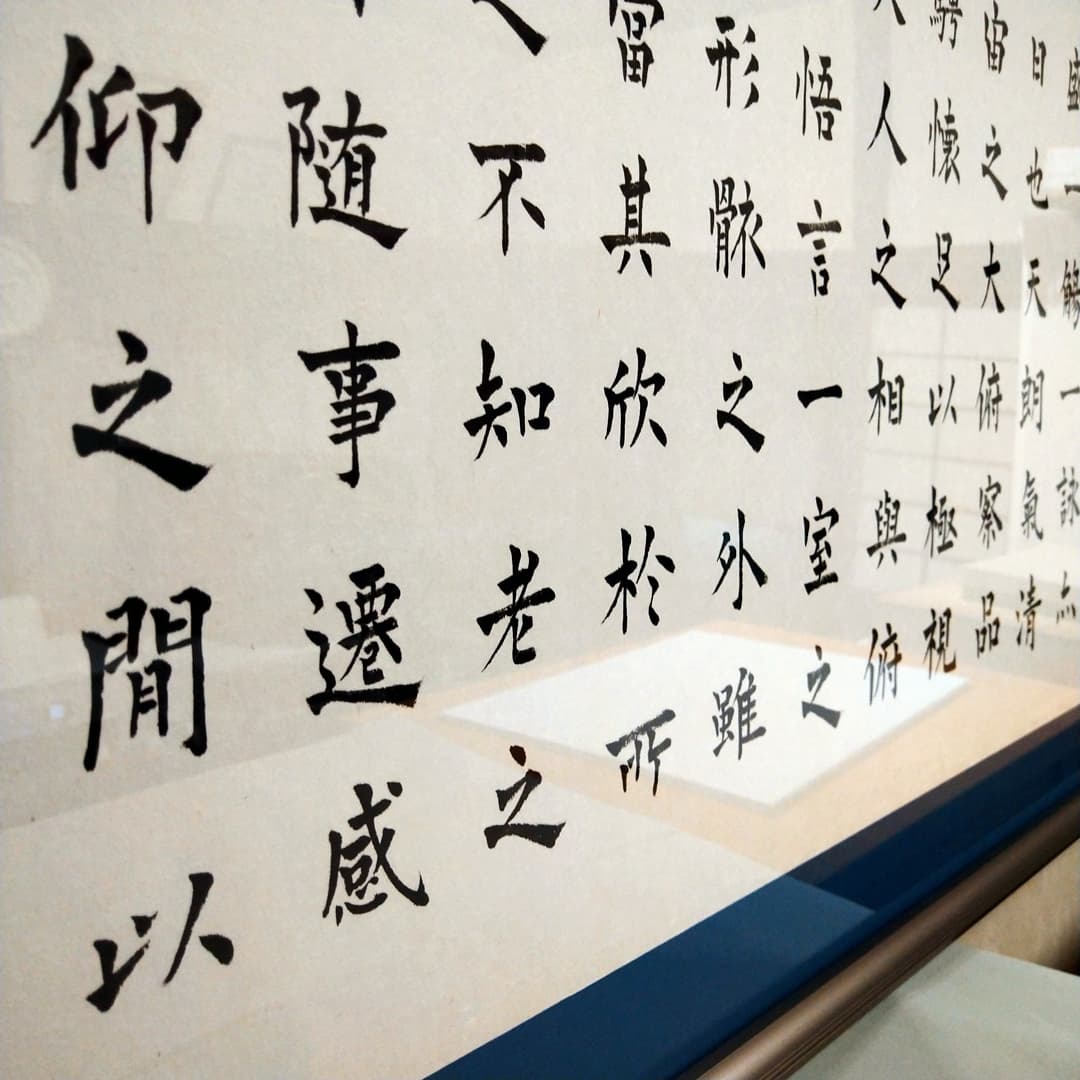 盛一觴一詠亦
日也天朗氣清
宙之大俯察品
騁懷足以極視
人之相與俯
悟言一室之
形骸之外雖
當其欣於所
不知老之
随事遷感
仰之間以